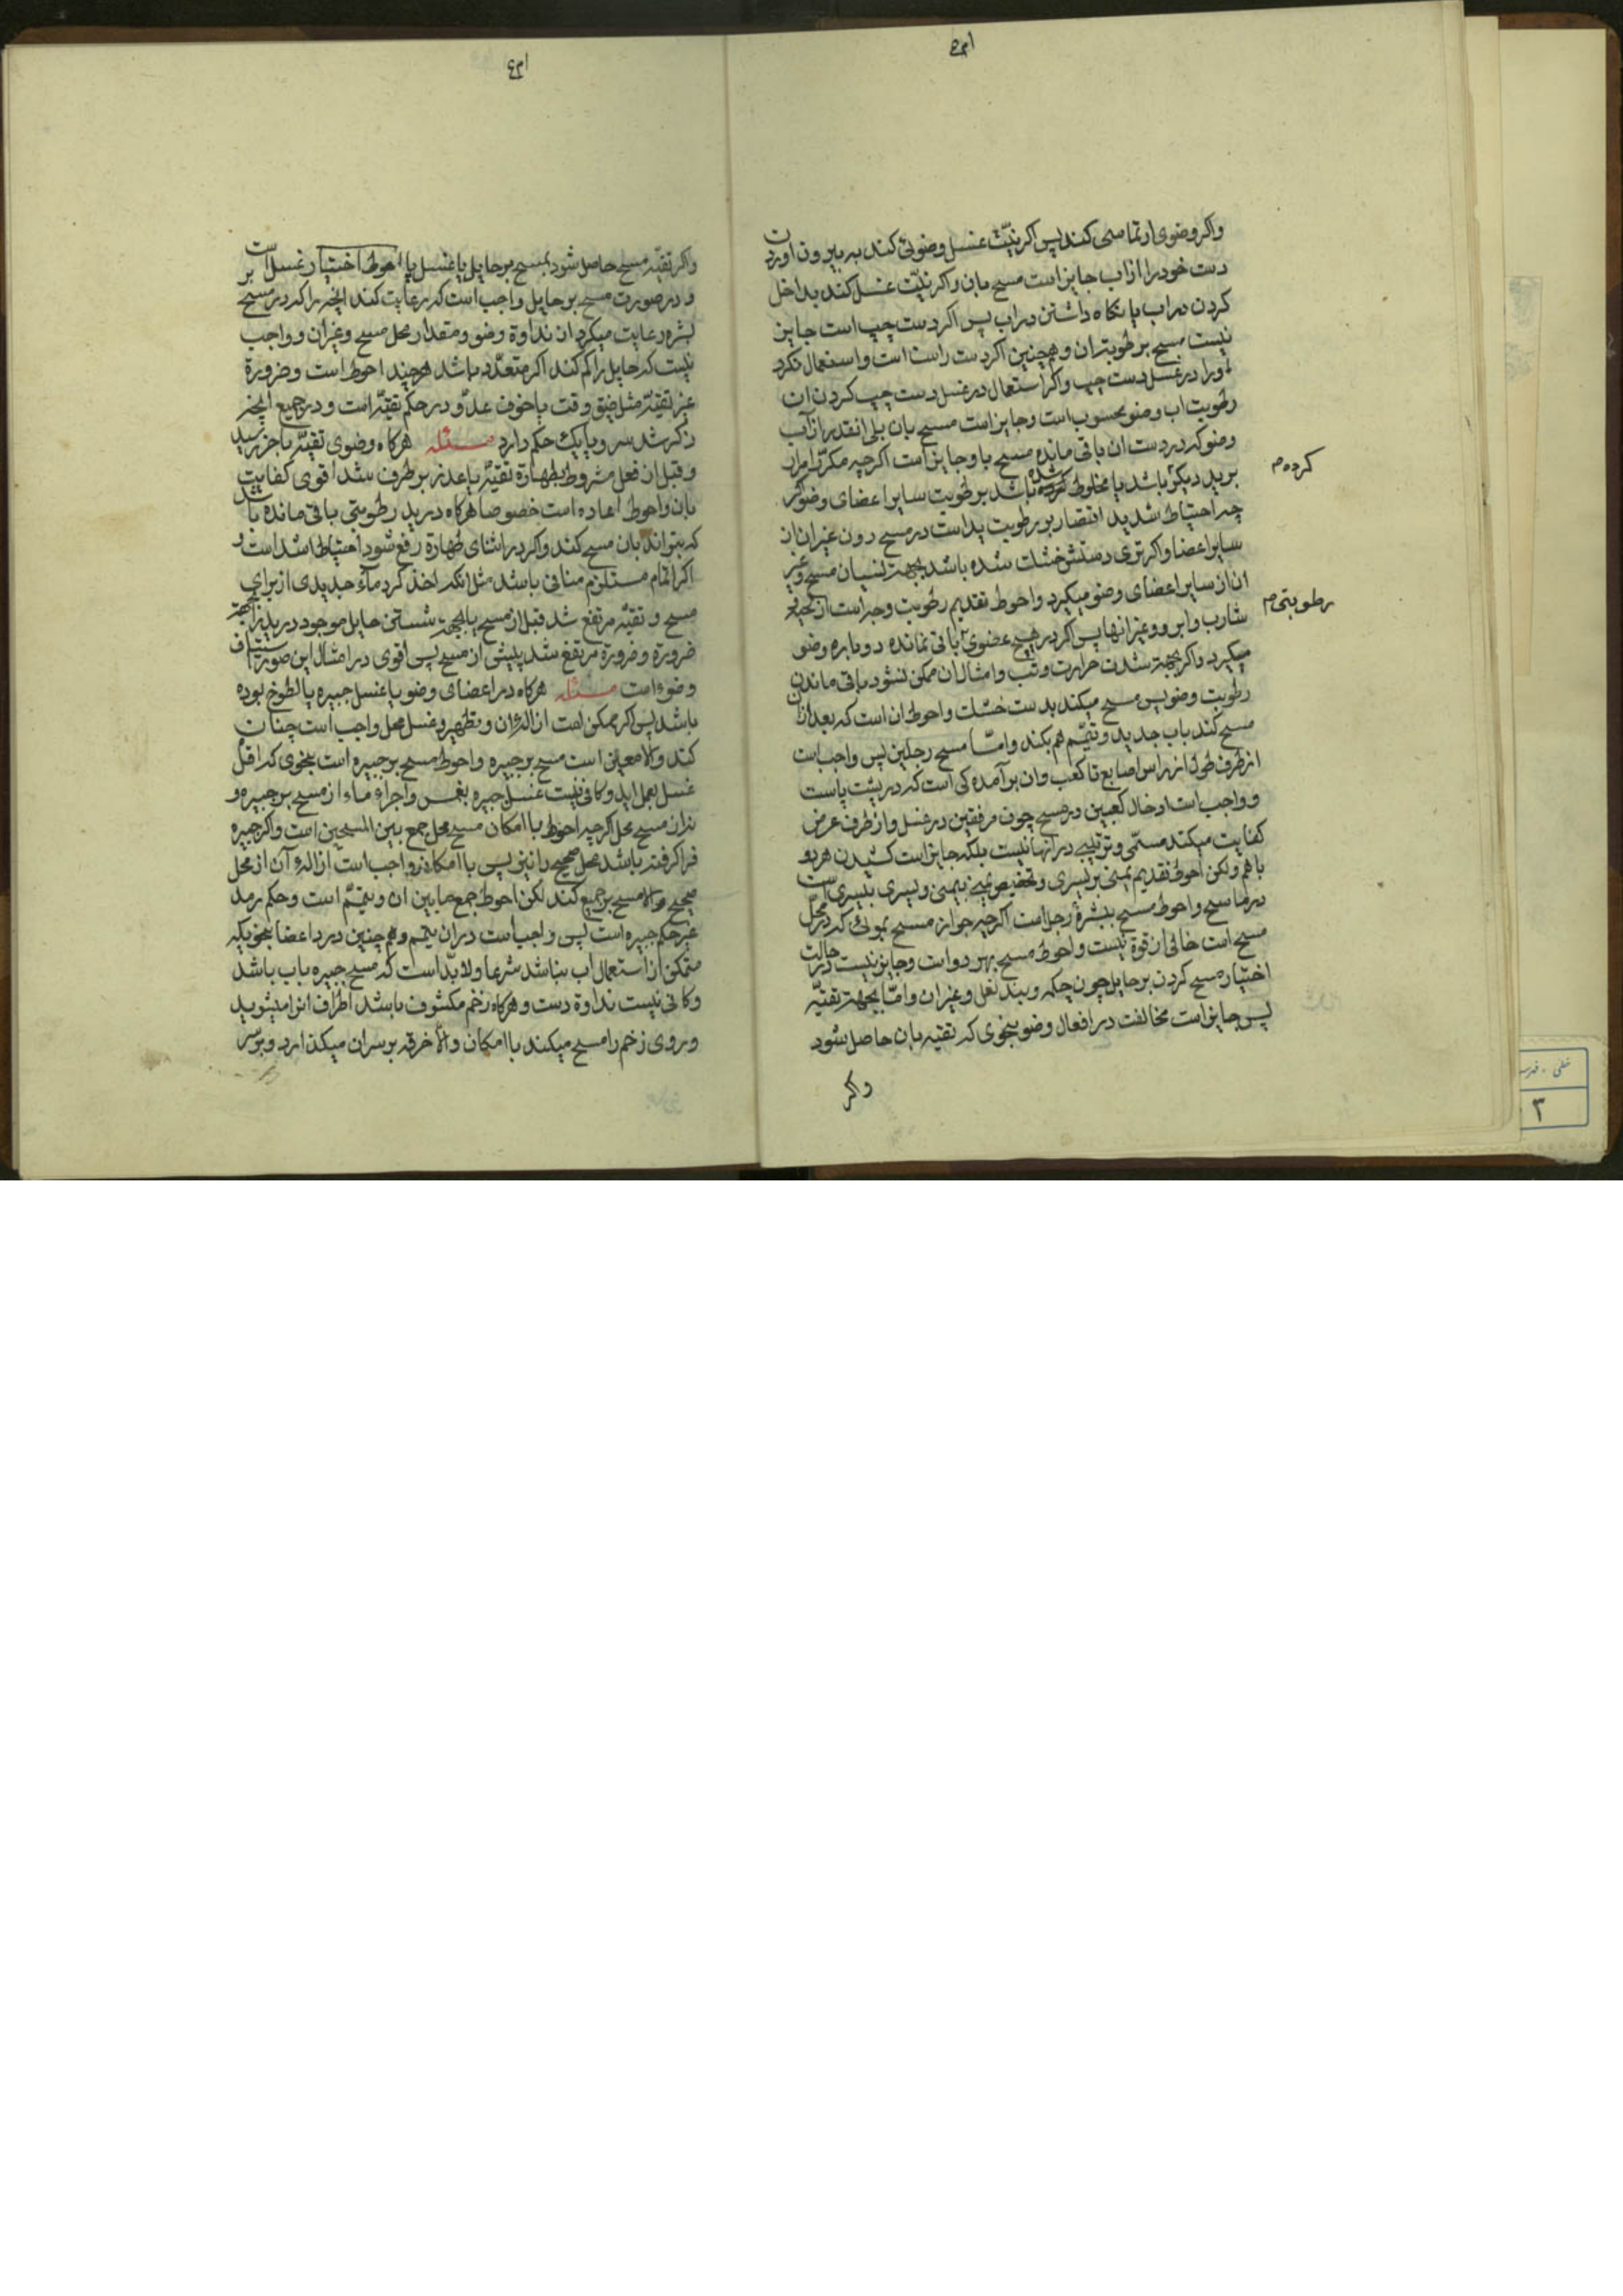 واکر وضوی ارتماسی کند پس اکر نیّت غسل وضوئی کند به بیرون اوردن
دست خود را از اب جایز است مسح بان واکر نیّت غسل کند بداخل
کردن در اب یا نکاه داشتن در اب پس اکر دست چپ است جایز
نیست مسح برطوبت ان و همچنین اکر دست راست است و استعمال نکرد
اورا در غسل دست چپ واکر استعمال در غسل دست چپ کردن ان
رطوبت اب وضو محسوب است و جایز است مسح بان بلی انقدر از آب
وضو که در دست ان باقی مانده مسح باو جایز است اکرچه مکرّر امرار
کرده م
برید دیکر باشد یا مخلوط شده باشد برطوبت سایر اعضای وضو اکر
چه احتیاط شدید اقتصار بر رطوبت ید است در مسح دون غیر ان از
سایر اعضا واکر تری دستش خشک شده باشد بجهة نسیان مسح و غیر
ان از سایر اعضای وضو میکیرد و احوط تقدیم رطوبت وجه است از لحیه
رطوبتی م
شارب و ابرو و غیر انها پس اکر در هیچ عضوی باقی نمانده دوباره وضو
میکیرد واکر بجهة شدت حرارت و تب و امثال ان ممکن نشود باقی ماندن
رطوبت وضو پس مسح میکند بدست خشک و احوط ان است که بعد از ان
مسح کند باب جدید و تیمّم هم بکند و امّا مسح رجلین پس واجب است
از طرف طول از راس اصابع تا کعب و ان برآمده کی است که در پشت پاست
و واجب است ادخال کعبین در مسح چون مرفقین در غسل و از طرف عرض
کفایت میکند مسمّی و ترتیبی در انها نیست بلکه جایز است کشیدن هر دو
باهم ولکن احوط تقدیم یمنی بر یسری و تخصیص یمنی بیمنی و یسری بیسری است
در ماسح و احوط مسح ببشرۀ رجل است اکرچه جواز مسح بموئی که در محلّ
مسح است خالی از قوة نیست و احوط مسح بهر دو است و جایز نیست در حالت
اختیار مسح کردن بر حایل چون چکمه و بند نعل و غیر ان و امّا بجهة تقیّه
پس جایز است مخالفت در افعال وضو بنحوی که تقیه بان حاصل شود
واکر
واکر تقیّه مسح حاصل شود بمسح بر حایل یا غسل پا احوط اختیار غسل است
و در صورت مسح بر حایل واجب است که رعایت کند انچه را که در مسح بر
بشره رعایت میکرد از نداوة وضو و مقدار محل مسح و غیر ان و واجب
نیست که حایل را کم کند اکر متعدّد باشد هرچند احوط است و ضرورة
غیر تقیّه مثل ضیق وقت یا خوف عدوّ در حکم تقیّه است و در جمیع انچه
ذکر شد سر و پا یک حکم دارد مسئله هرکاه وضوی تقیّه باخر رسید
و قبل از فعل مشروط بطهارة تقیّه یا عذر بر طرف شد اقوی کفایت
بان و احوط اعاده است خصوصا هرکاه در ید رطوبتی باقی مانده باشد
که بتواند بان مسح کند واکر در اثنای طهارة رفع شود احتیاط اشد است و
اکر اتمام مستلزم منافی باشد مثل انکه اخذ کرد ماء جدیدی از برای
مسح و تقیّه مرتفع شد قبل از مسح یا بجهة شستن حایل موجود در ید از جهة
ضرورة و ضرورة مرتفع شد پیش از مسح پس اقوی در امثال این صور استیناف
وضوء است مسئله هرکاه در اعضای وضو یا غسل جبیره یا لطوخ بوده
باشد پس اکر ممکن است ازالۀ ان و تطهیر و غسل محل واجب است چنان
کند والا معین است مسح بر جبیره و احوط مسح بر جبیره است بنحوی که اقل
غسل بعمل اید و کافی نیست غسل جبیره بغمس و اجراء ماء از مسح بر جبیره و
نه از مسح محل اکرچه احوط با امکان مسح محل جمع بین المسحین است واکر جبیره
فرا کرفته باشد محل صحیح را نیز پس با امکان واجب است ازالۀ آن از محل
صحیح والا مسح بر جمیع کند لکن احوط جمع مابین ان و تیمّم است و حکم رمد
غیر حکم جبیره است پس واجب است در ان تیمم و همچنین درد اعضا بنحویکه
متمکن از استعمال اب نباشد شرعا ولا بدّ است که مسح جبیره باب باشد
و کافی نیست نداوة دست و هرکاه زخم مکشوف باشد اطراف انرا میشوید
و روی زخم را مسح میکند با امکان والّا خرقه بر سر ان میکذارد و بر سر